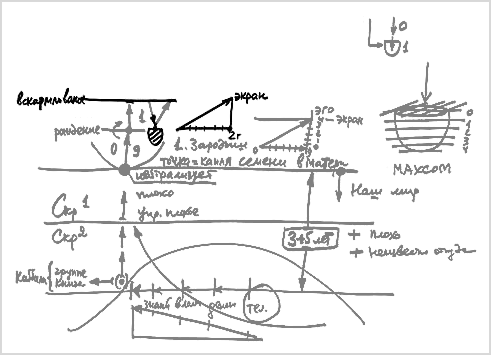 0
1
вскармливание
1
экран
эго
экран
рождение
0
9
2г
1. Зародыш
точка=капля семени в матери
0
1
2
3
4
МАХСОМ
нейтрализует
плохо
упр. плохо
Скр 1
Наш мир
Скр 2
345 лет
+ плохо
+ неизвестн откуда
Каббала { группе книга
знания власт деньги тел.